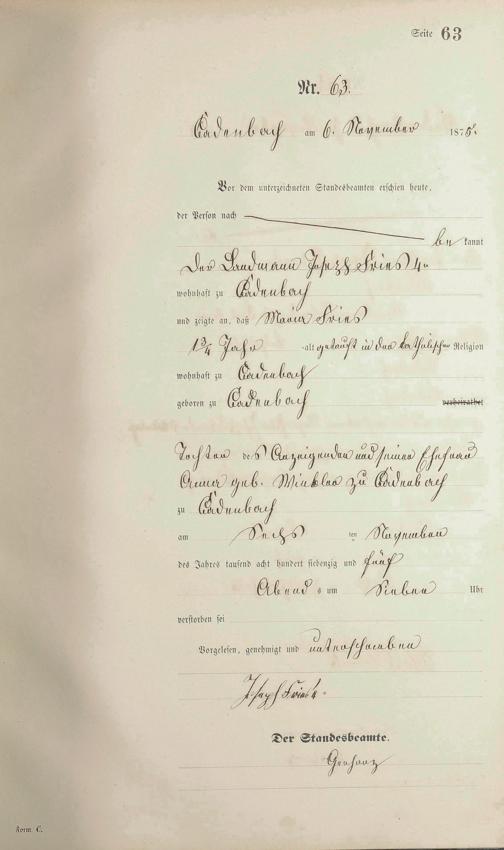 Seite 63
Nr. 63.
Cadenbach am 6. November 1875.
Vor dem unterzeichneten Standesbeamten erschien heute,
der Person nach
be kannt
Der Landmann Joseph Fries 4r
wohnhaft zu Cadenbach
und zeigte an, daß Maria Fries
1 3/4 Jahr alt getauft in der katholischen Religion
wohnhaft zu Cadenbach
geboren zu Cadenbach verheirathet
Tochter des Anzeigenden und seiner Ehefrau
Anna geb. Winkler zu Cadenbach
zu Cadenbach
am Sechs ten November
des Jahres tausend acht hundert siebenzig und fünf
Abend s um Sieben Uhr
verstorben sei
Vorgelesen, genehmigt und unterschrieben
Joseph Fries 4r
Der Standesbeamte.
Gerharz
Form. C.